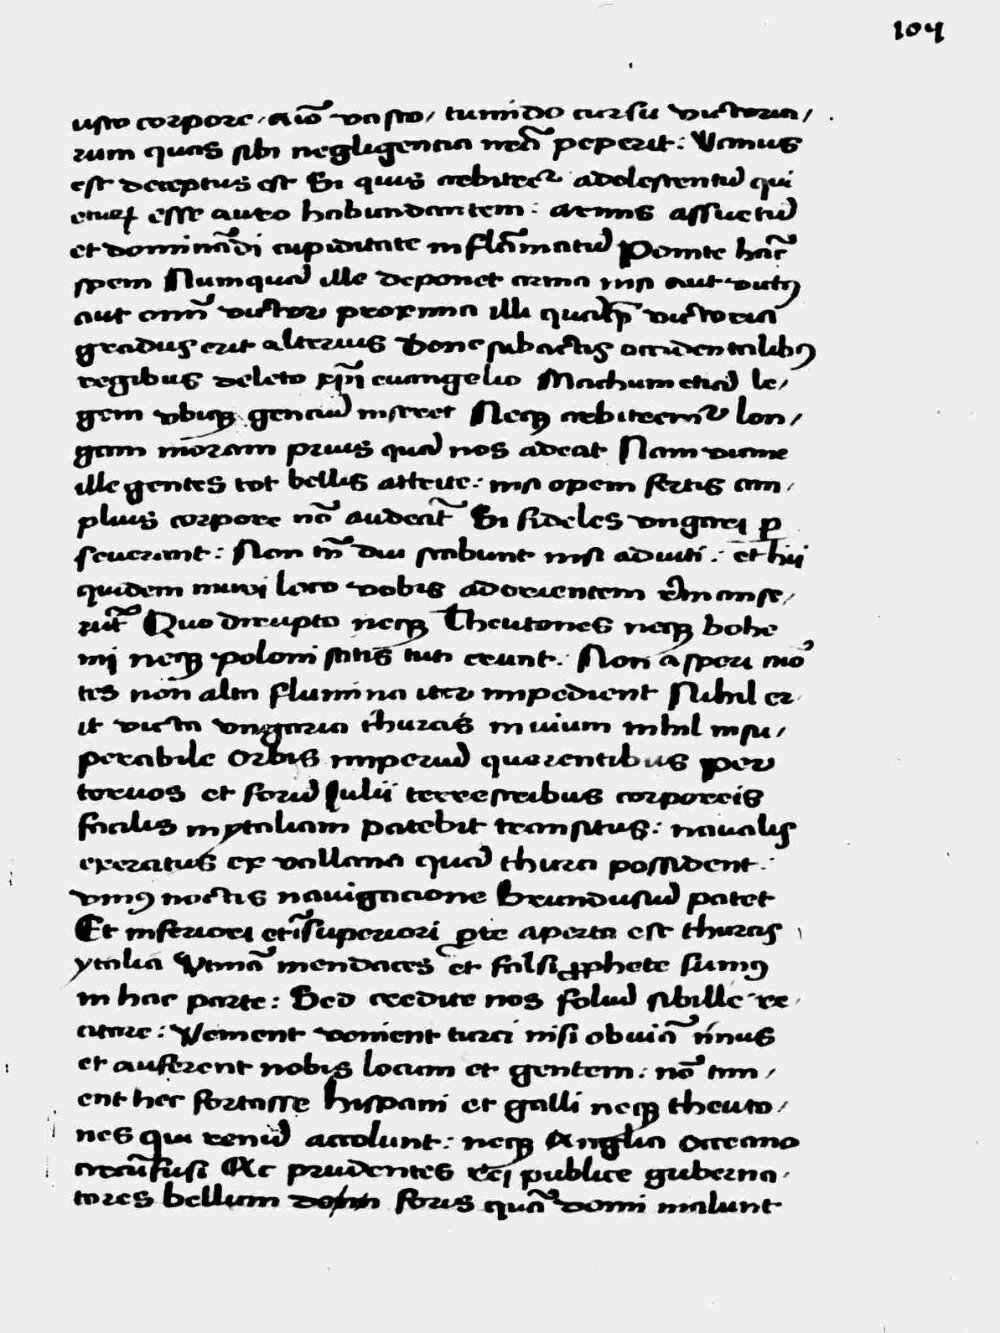 104
usto corpore, aīo vasto, tumido cursu victoria,
rum quas sibi negligencia nr̄a peperit: Vanus
est deceptus est Si quis arbitretr adolescentū qui
esse auro habundantem: armis assuetū
et domināди cupiditate inflāmatū Ponite hāc
spem Numquā ille deponet arma nisi aut victꝰ
aut oīm̄ victor proxima illi qualꝫ victoria
gradus erit alterius Bone subactis occidentalibꝰ
regibus deleto xp̄i euangelio Machumetiā le,
gem vbiqꝫ genciū inseret Neqꝫ arbitremr̄ lon,
gam moram prius quā nos adeat Nam vicine
ille gentes tot bellis attrite: nisi opem fertis am,
plius corpore nō audeāt Si fideles vngari ꝑ
seuerant: Non tn̄ diu stabunt nisi adiuti: et hii
quidem muri loco vobis ad orientem r̄manse,
rūt Quo dirupto neqꝫ Theutones neqꝫ bohe
mi neqꝫ poloni satis tuti erunt: Non asperi mō
tes non alta flumina iter impedient Nihil er,
it victa vngaria thurcis inuium nihil insu,
perabile Orbis imperiū querentibus per
toruos et foriū Julii terrestribus corporeis
facilis in ytaliam patebit transitus: naualis
exercitus ex vallana quā thurci possident:
vniꝰ noctis nauigacione Brundusiū patet
Et inferiori etiā superiori ꝑte aperta est thurcis
ytalia Vtinā mendaces et falsi ꝓphete simꝰ
in hac parte: Sed credite nos foliū sibille re,
citare: Venient venient turci nisi obuiā īmus
et auferent nobis locum et gentem: nō tim,
ent hec fortasse hispani et galli neqꝫ theuto,
nes qui renū accolunt: neqꝫ Anglia Occeano
circūfusi Ac prudentes rei publice guberna,
tores bellum foris quā domi malunt